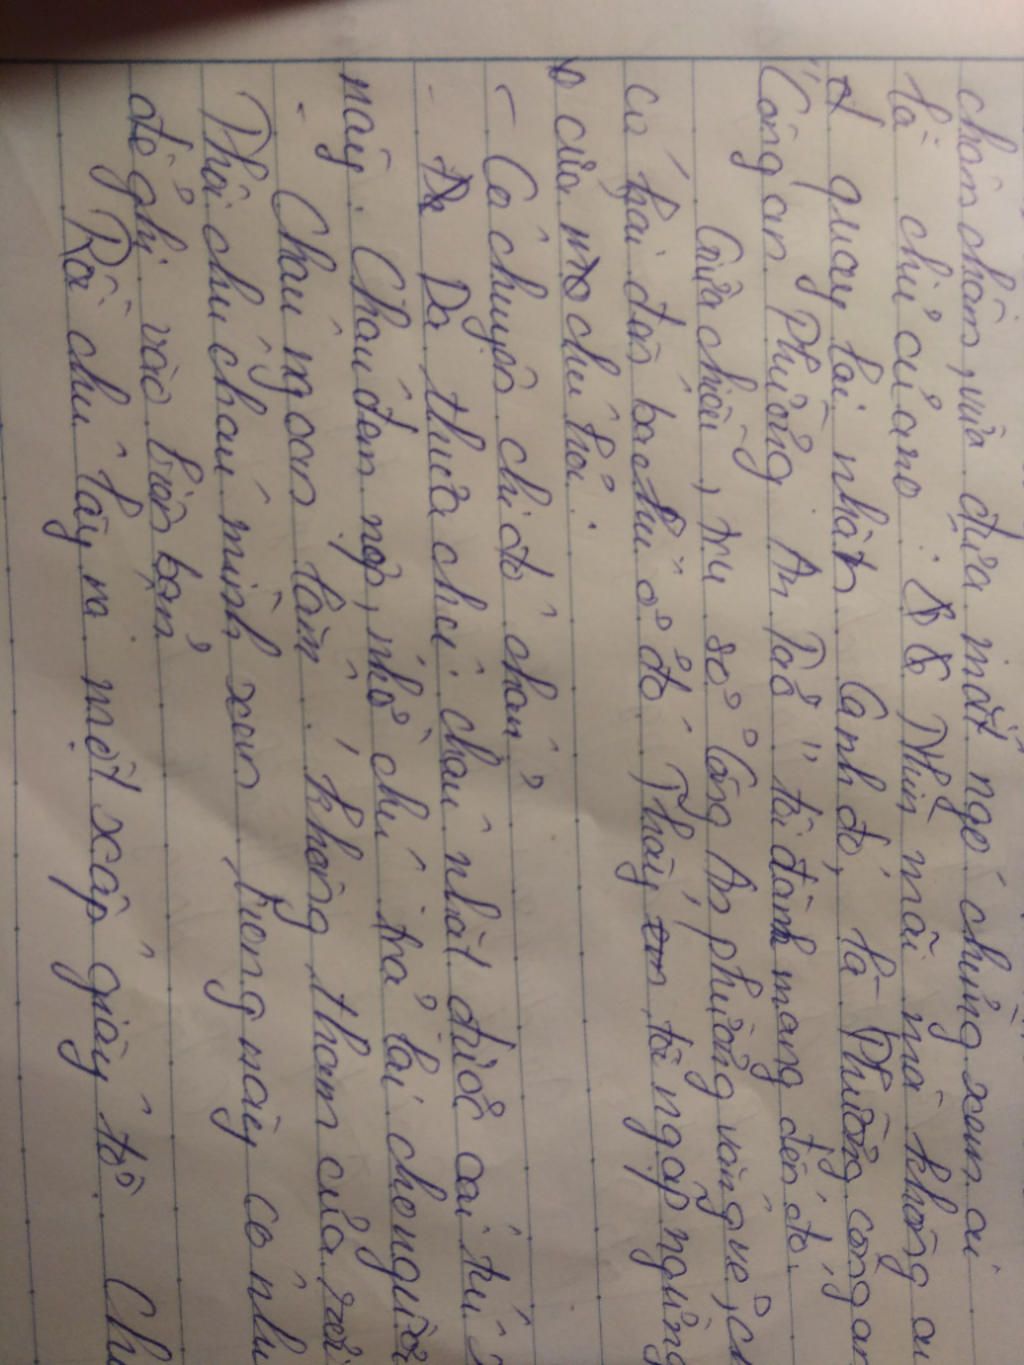 chầm chậm, vừa đưa mắt ngó chừng xem ai
là chủ của nó. Nhìn mãi mà không ai
quay lại nhận. Cạnh đó, là Phường công an
"Công an Phường An Tảo" tôi đành mang đến đó.
Giữa chiều, trụ sở Công An phường vắng vẻ, ch
có hai đàn bà ở đó. Thấy tôi ngập ngừng
cửa chú hỏi:
- Có chuyện chi đó cháu?
- Dạ, thưa chú. cháu nhặt được cái túi
này. Cháu đem nộp, nhờ chú trả lại cho người
- Cháu ngoan lắm, không tham của rơi
Thôi chú cháu mình xem trong này có nhu
để ghi vào biên bản
Rồi chú lấy ra một xấp giấy tờ. Ch